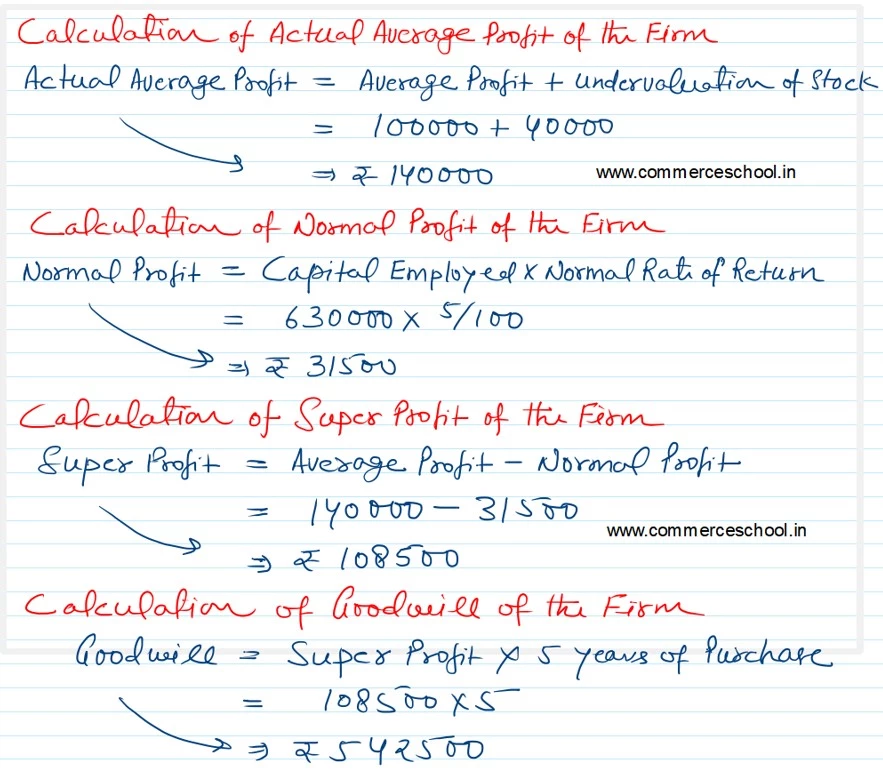 Calculation of Actual Average Profit of the Firm
Actual Average Profit = Average Profit + Undervaluation of Stock
= 100000 + 40000
⇒ ₹ 140000
www.commerceschool.in
Calculation of Normal Profit of the Firm
Normal Profit = Capital Employed × Normal Rate of Return
= 630000 × 5/100
⇒ ₹ 31500
Calculation of Super Profit of the Firm
Super Profit = Average Profit − Normal Profit
= 140000 − 31500
www.commerceschool.in
⇒ ₹ 108500
Calculation of Goodwill of the Firm
Goodwill = Super Profit × 5 years of Purchase
= 108500 × 5
⇒ ₹ 542500